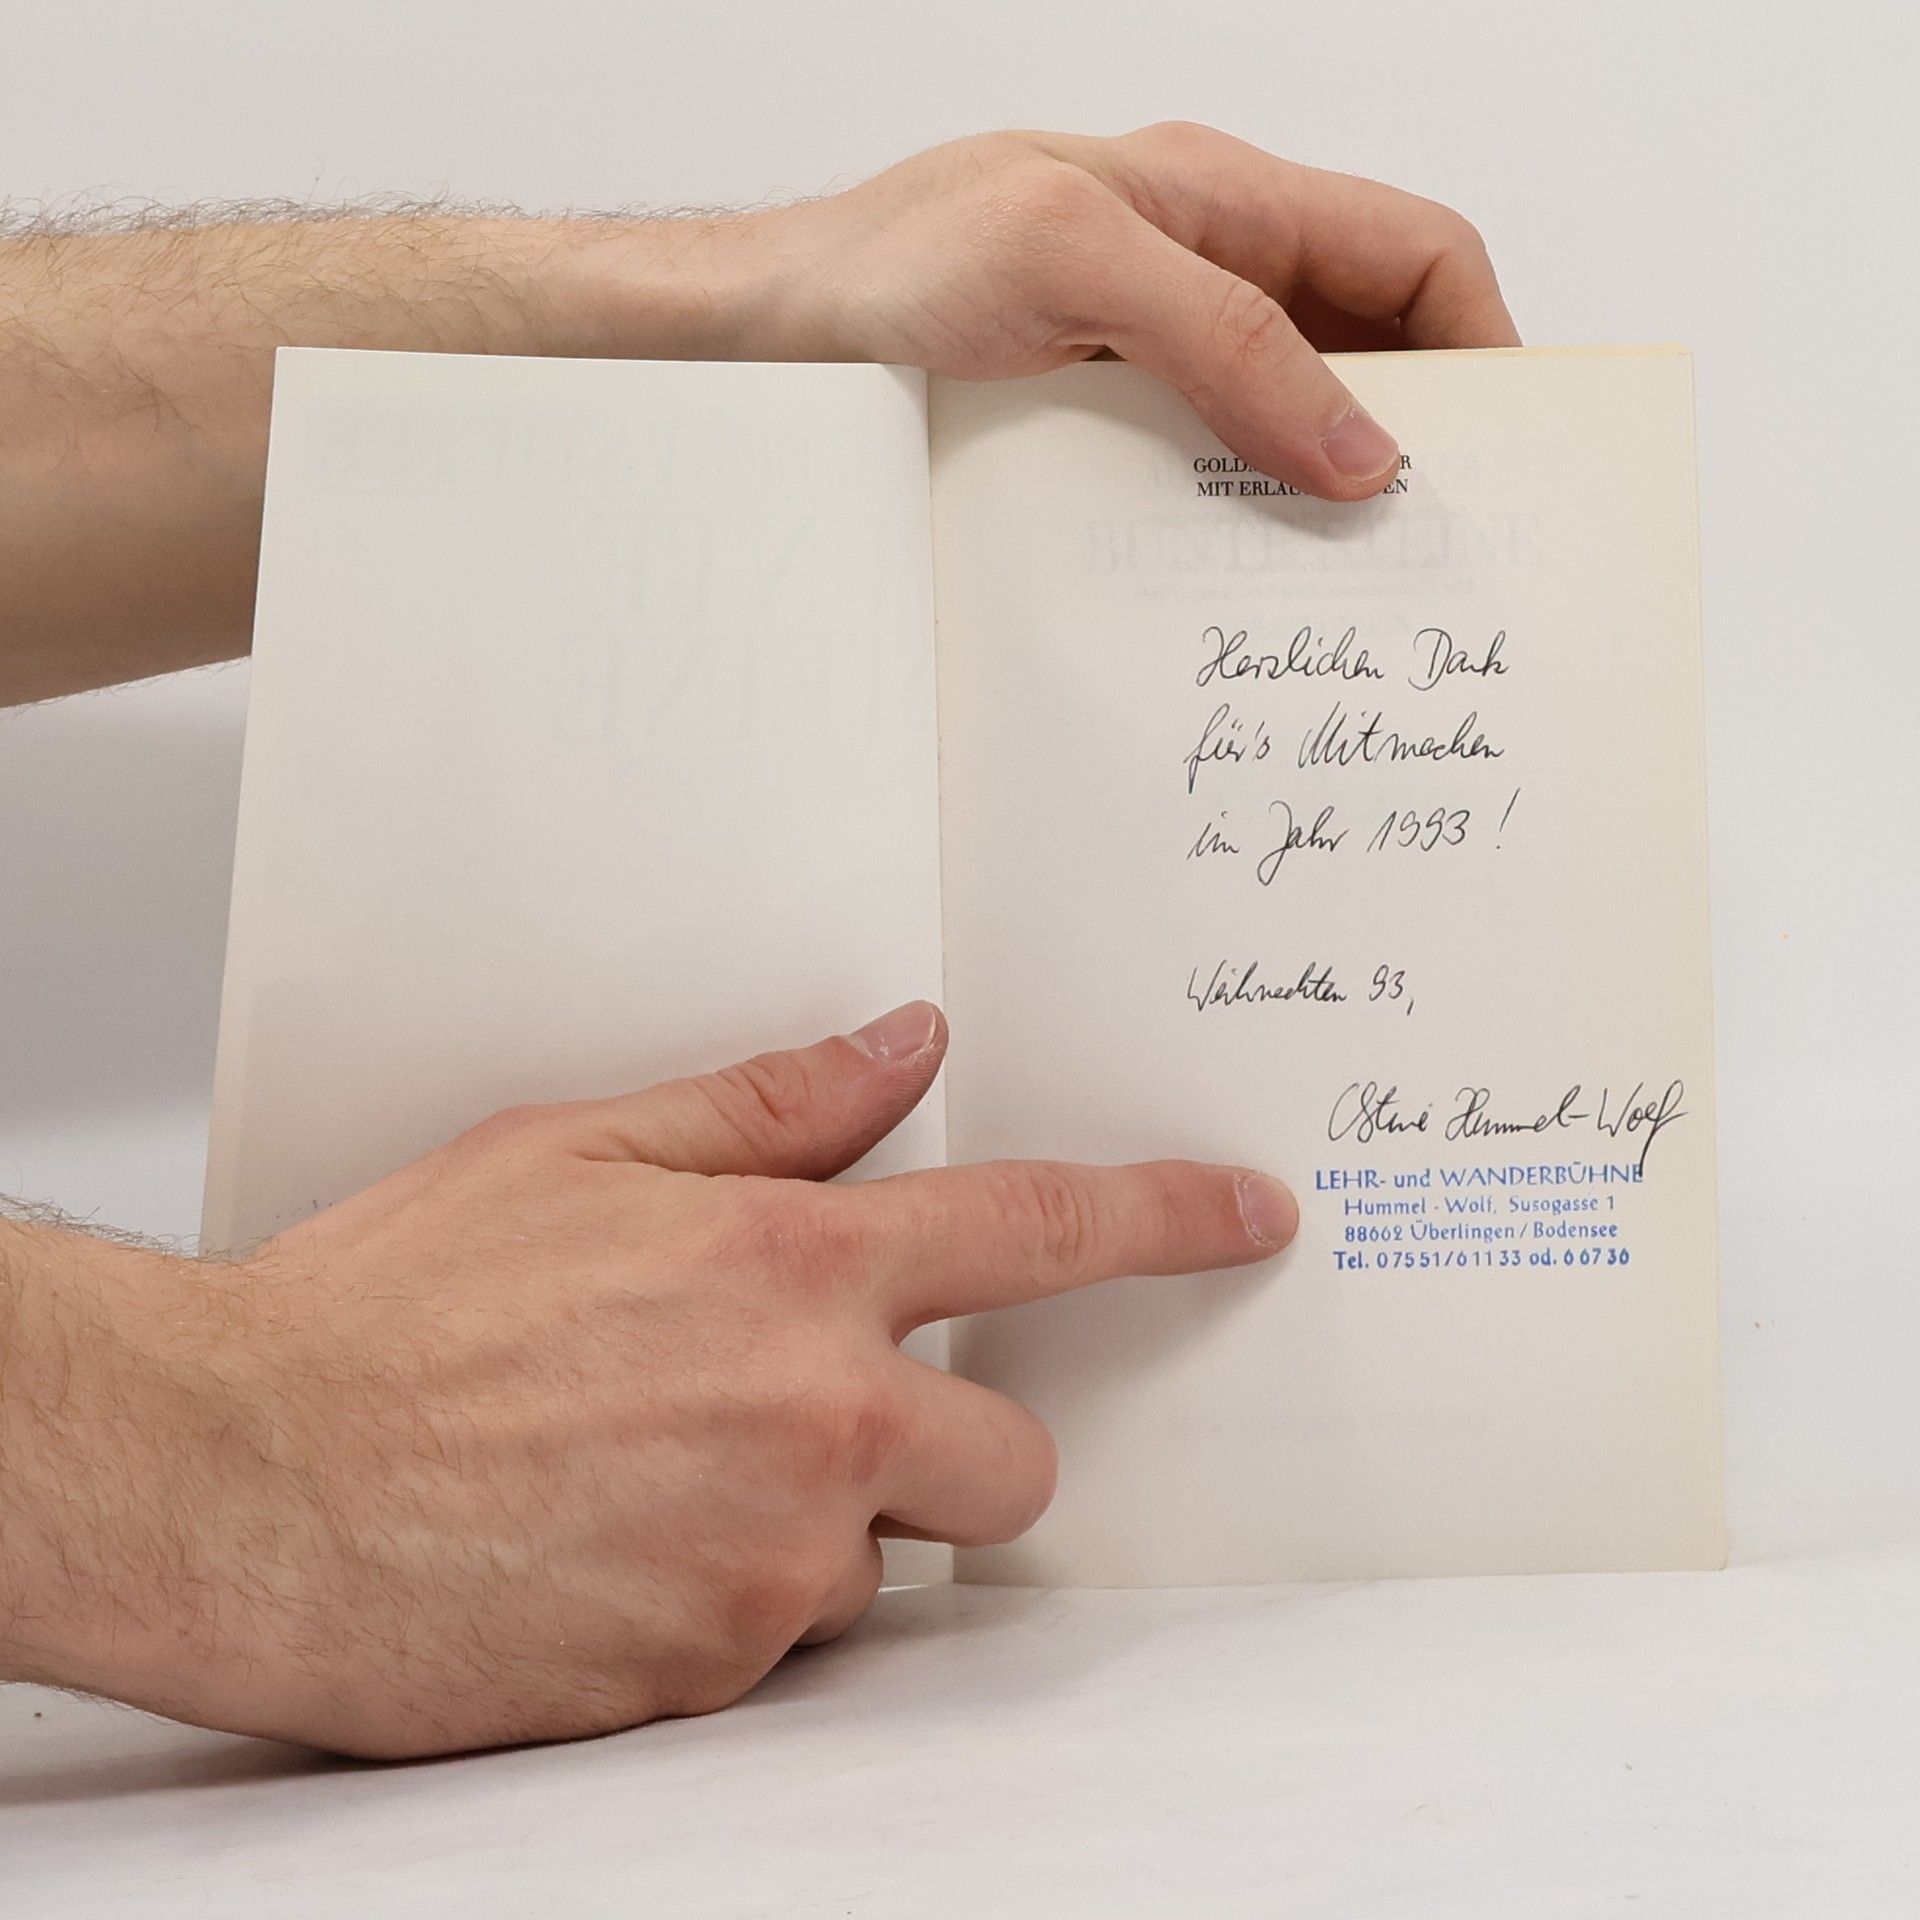 MIT
Herzlichen Dank
für's Mitmachen
im Jahr 1993!
Weihnachten 93,
Hummel-Wolf
LEHR- und WANDERBÜHNE
Hummel - Wolf, Susogasse 1
88662 Überlingen/Bodensee
Tel. 07551/61133 od. 66736